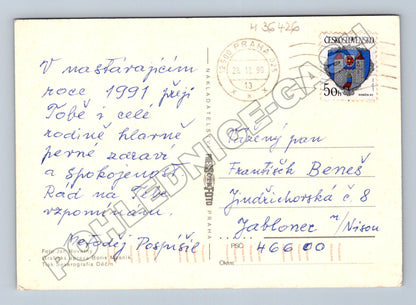 4 36426
12500 PRAHA 025
28.12.90
13
ČESKOSLOVENSKO
50h
V nastávajícím
roce 1991 přeji
Tobě i celé
rodině hlavně
pevné zdraví
a spokojenost
Rád na Tebe
vzpomínám.
Metoděj Pospíšil
NAKLADATELSTVÍ
PRESSFOTO
PRAHA
Vážený pan
František Beneš
Jindřichorská č 8
Jablonec n/Nisou
PSČ: 466 00
Okres:
Grafická úprava Boris Mysník
Tisk Severografia Děčín
POHLEDNICE-GASH